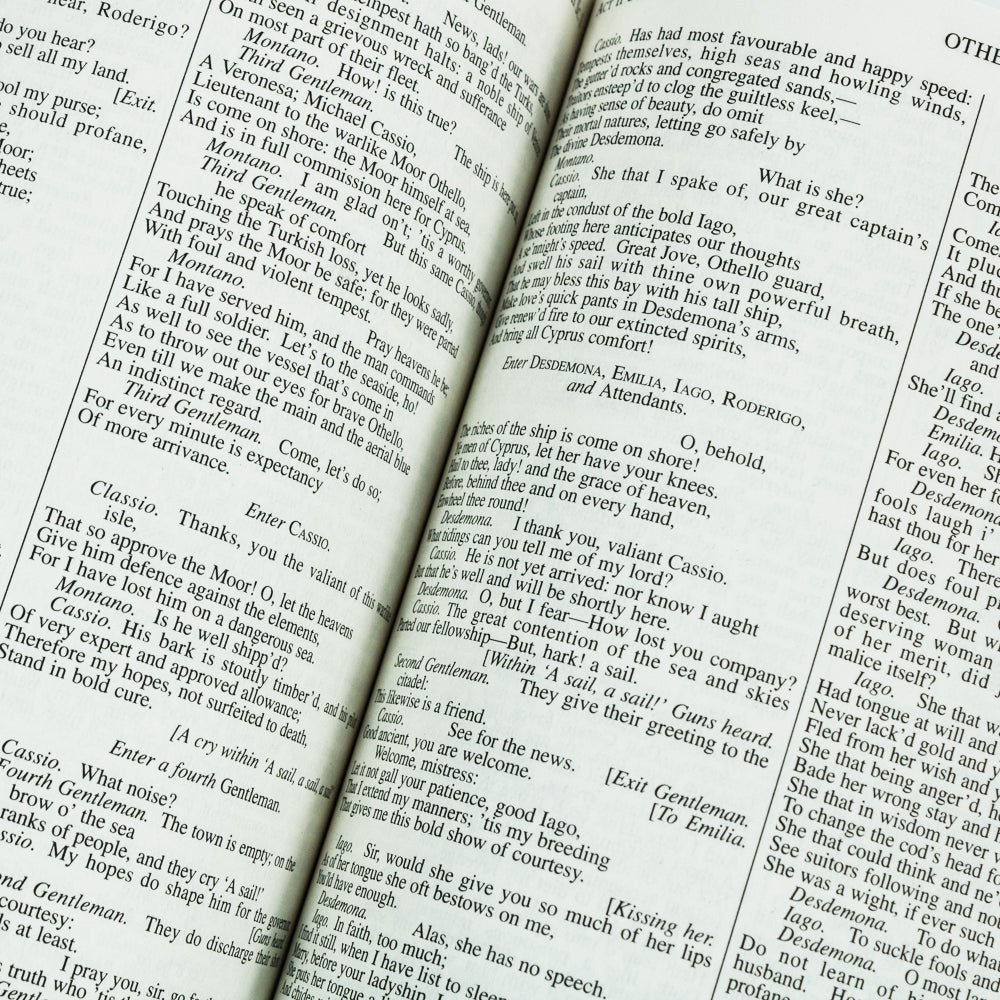 hear, Roderigo?
do you hear?
sell all my land.
[Exit.
ool my purse;
should profane,
Moor;
heets
true;
News, lads!
empest hath so bang'd the Turks
designment halts; a noble ship of
seen a grievous wreck and sufferance
On most part of their fleet.
Montano. How! is this true?
Third Gentleman.
The ship is here
A Veronesa; Michael Cassio,
Lieutenant to the warlike Moor Othello,
Is come on shore: the Moor himself at sea,
And is in full commission here for Cyprus.
Montano. I am glad on't; 'tis a worthy
Third Gentleman. But this same Cassio
he speak of comfort
Touching the Turkish loss, yet he looks sadly,
And prays the Moor be safe; for they were parted
With foul and violent tempest.
Montano. Pray heavens he be;
For I have served him, and the man commands
Like a full soldier. Let's to the seaside, ho!
As well to see the vessel that's come in
As to throw out our eyes for brave Othello,
Even till we make the main and the aerial blue
An indistinct regard.
Third Gentleman. Come, let's do so;
For every minute is expectancy
Of more arrivance.
Enter CASSIO.
Classio. Thanks, you the valiant of this
isle,
That so approve the Moor! O, let the heavens
Give him defence against the elements,
For I have lost him on a dangerous sea.
Montano. Is he well shipp'd?
Cassio. His bark is stoutly timber'd, and his
Of very expert and approved allowance;
Therefore my hopes, not surfeited to death,
Stand in bold cure.
[A cry within 'A sail, a sail, a
Enter a fourth Gentleman.
Cassio. What noise?
Fourth Gentleman. The town is empty; on the
brow o' the sea
ranks of people, and they cry 'A sail!'
ssio. My hopes do shape him for the
[Guns
ond Gentleman. They do discharge their
courtesy:
ds at least.
I pray you, sir, go
truth who 'tis
Cassio. Has had most favourable and happy speed:
Tempests themselves, high seas and howling winds,
The gutter'd rocks and congregated sands,—
Traitors ensteep'd to clog the guiltless keel,—
As having sense of beauty, do omit
Their mortal natures, letting go safely by
The divine Desdemona.
Montano. What is she?
Cassio. She that I spake of, our great captain's
captain,
Left in the condust of the bold Iago,
Whose footing here anticipates our thoughts
A se'nnight's speed. Great Jove, Othello guard,
And swell his sail with thine own powerful breath,
That he may bless this bay with his tall ship,
Make love's quick pants in Desdemona's arms,
Give renew'd fire to our extincted spirits,
And bring all Cyprus comfort!
Enter DESDEMONA, EMILIA, IAGO, RODERIGO,
and Attendants.
O, behold,
The riches of the ship is come on shore!
Ye men of Cyprus, let her have your knees.
Hail to thee, lady! and the grace of heaven,
Before, behind thee and on every hand,
Enwheel thee round!
Desdemona. I thank you, valiant Cassio.
What tidings can you tell me of my lord?
Cassio. He is not yet arrived: nor know I aught
But that he's well and will be shortly here.
Desdemona. O, but I fear—How lost you company?
Cassio. The great contention of the sea and skies
Parted our fellowship—But, hark! a sail.
[Within 'A sail, a sail!' Guns heard.
Second Gentleman. They give their greeting to the
citadel:
This likewise is a friend.
Cassio. See for the news.
[Exit Gentleman.
Good ancient, you are welcome.
[To Emilia.
Welcome, mistress:
Let it not gall your patience, good Iago,
That I extend my manners; 'tis my breeding
That gives me this bold show of courtesy.
[Kissing her.
Iago. Sir, would she give you so much of her lips
As of her tongue she oft bestows on me,
You'ld have enough.
Desdemona. Alas, she has no speech.
Iago. In faith, too much;
I find it still, when I have list to sleep
Marry, before your ladyship,
She puts her tongue
And chides
OTHE
The
Com
Come
It pluc
And thu
If she be
The one
Desde
and
Iago.
She'll find
Desdem
Emilia. H
Iago. Sh
For even her f
Desdemona
fools laugh i'
hast thou for her
Iago. There
But does foul p
Desdemona.
worst best. But w
deserving woman
of her merit, did
malice itself?
Iago. She that w
Had tongue at will and
Never lack'd gold and
Fled from her wish and
She that being anger'd, h
Bade her wrong stay and
She that in wisdom never w
To change the cod's head fo
She that could think and ne'
See suitors following and no
She was a wight, if ever such
Desdemona. To do wha
Iago. To suckle fools and
Desdemona. O most la
Do not learn of
husband.